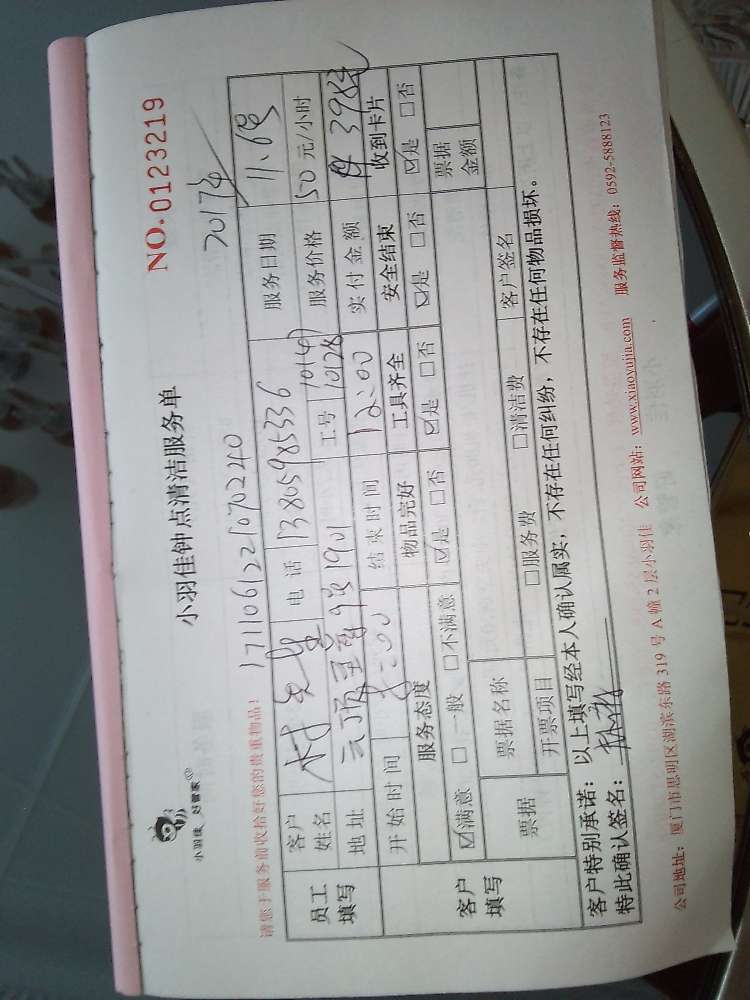 小羽佳 好管家
小羽佳钟点清洁服务单
NO.0123219
2017年
请您于服务前收拾好您的贵重物品！
1711061221070240
员工填写
客户姓名 林先生 电话 13805985336 服务日期 11.6号
地址 1901 工号 10147 10128 服务价格 50元/小时
开始时间 8:00 结束时间 12:00 实付金额 398
服务态度 物品完好 工具齐全 安全结束 收到卡片
客户填写
☑满意 □一般 □不满意 ☑是 □否 ☑是 □否 ☑是 □否 ☑是 □否
票据 票据名称 票据金额
开票项目 □服务费 □清洁费 客户签名
客户特别承诺：以上填写经本人确认属实，不存在任何纠纷，不存在任何物品损坏。
特此确认签名：
公司地址：厦门市思明区湖滨东路319号A幢2层小羽佳 公司网站：www.xiaoyujia.com 服务监督热线：0592-5888123